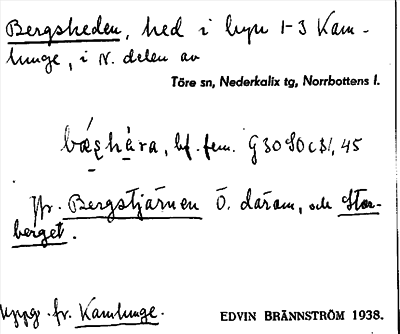 Bergsheden, hed i byn 1-3 Kam-
lunge, i N. delen av
Töre sn, Nederkalix tg, Norrbottens l.
bæ̀ʂhàra, bf. fem. G 30 SO c 31, 45
Jfr. Bergstjärnen Ö. därom, och Stor-
berget.
Uppg. fr. Kamlunge.
EDVIN BRÄNNSTRÖM 1938.